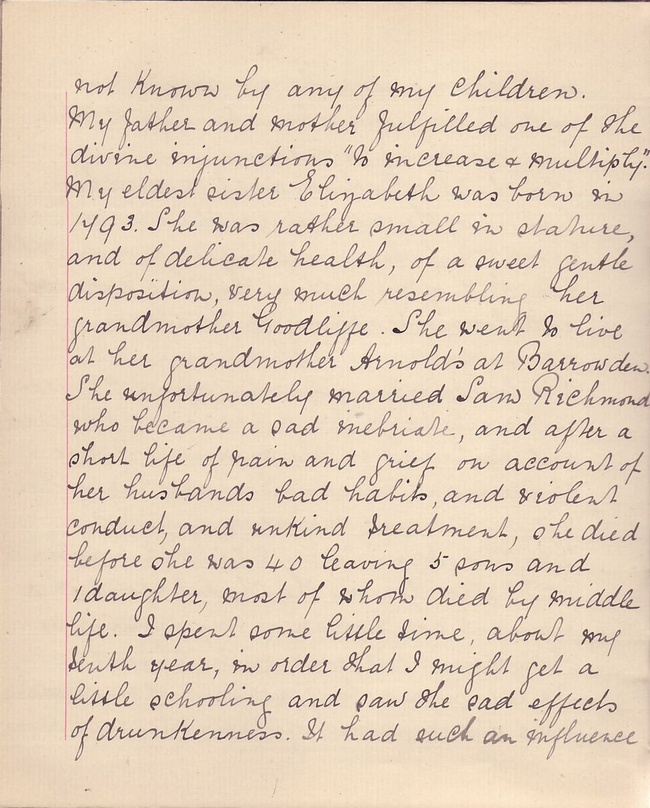 not known by any of my children.
My father and mother fulfilled one of the
divine injunctions "to increase & multiply."
My eldest sister Elizabeth was born in
1793. She was rather small in stature,
and of delicate health, of a sweet gentle
disposition, very much resembling her
grandmother Goodliffe. She went to live
at her grandmother Arnold's at Barrowden.
She unfortunately married Sam Richmond
who became a sad inebriate, and after a
short life of pain and grief on account of
her husbands bad habits, and violent
conduct, and unkind treatment, she died
before she was 40 leaving 5 sons and
1 daughter, most of whom died by middle
life. I spent some little time, about my
tenth year, in order that I might get a
little schooling and saw the sad effects
of drunkenness. It had such an influence